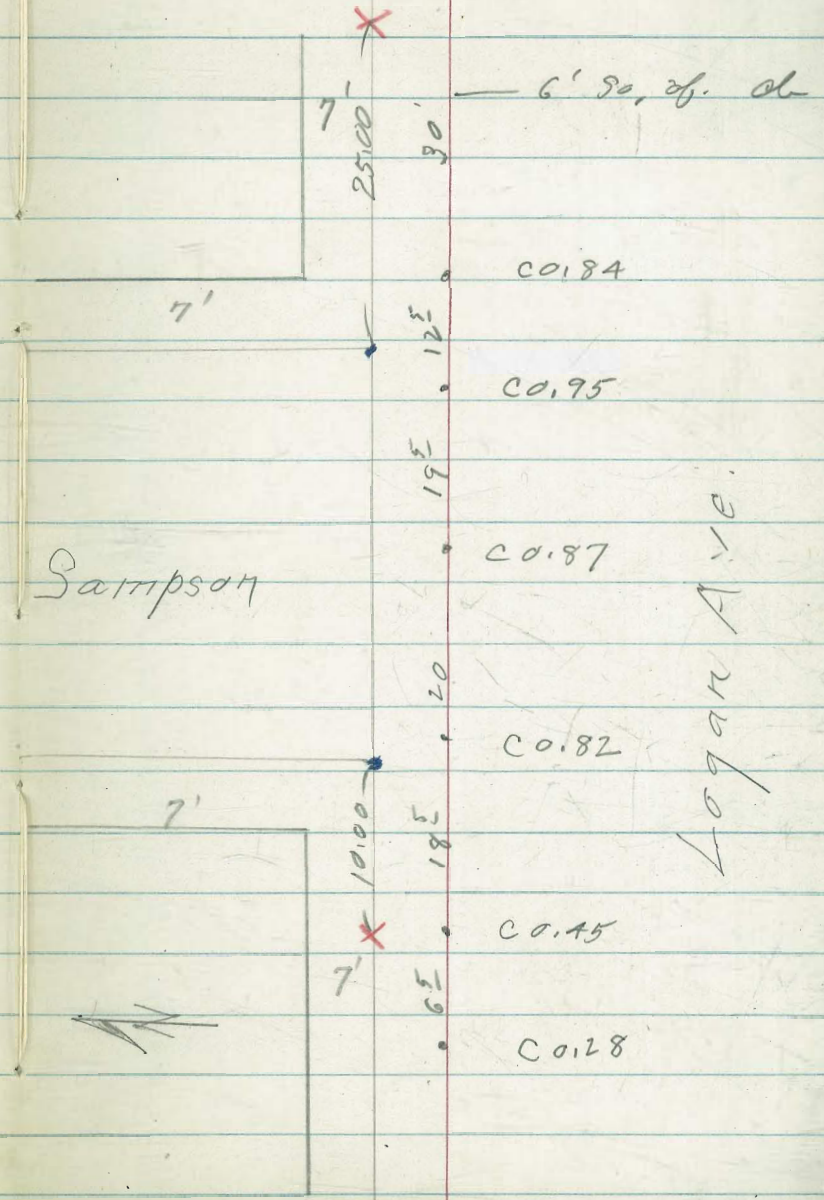 7'
25.00
30'
6' So. of.
7'
C 0.84
12⁵
C 0.95
19⁵
C 0.87
Sampson
Logan Ave.
20
C 0.82
7'
10.00
18⁵
C 0.45
7'
6⁵
C 0.28